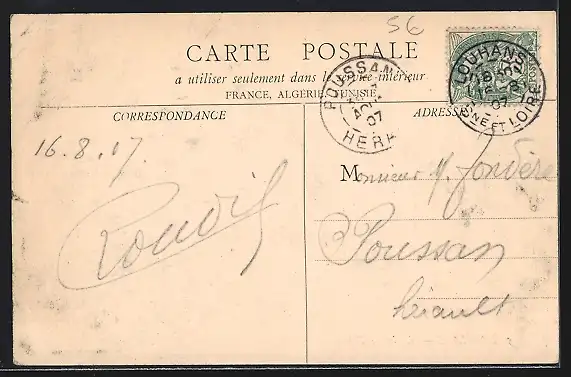 56
CARTE POSTALE
a utiliser seulement dans le service intérieur
FRANCE, ALGÉRIE, TUNISIE
CORRESPONDANCE
ADRESSE
POUSSAN
07
HERAULT
LOUHANS
07
SAONE ET LOIRE
16.8.07.
Monsieur
Poussan
Hérault